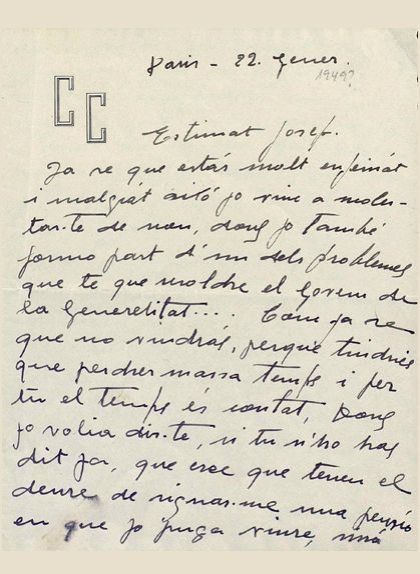 Paris - 22. Gener.
1949?
CC
Estimat Josep.
Ja se que estás molt enfeinat
i malgrat aitó jo vinc a moles-
tar-te de nou, dons jo també
formo part d'un dels problemes
que te que resoldre el Govern de
la Generalitat.... Com ja se
que no vindrás, perque tindries
que perdrer massa temps i per
tu el temps és contat, Dons
jo volia dir-te, si tu n'ho has
dit ja, que crec que tenen el
deure de signar-me una pensió
en que jo puga viure,